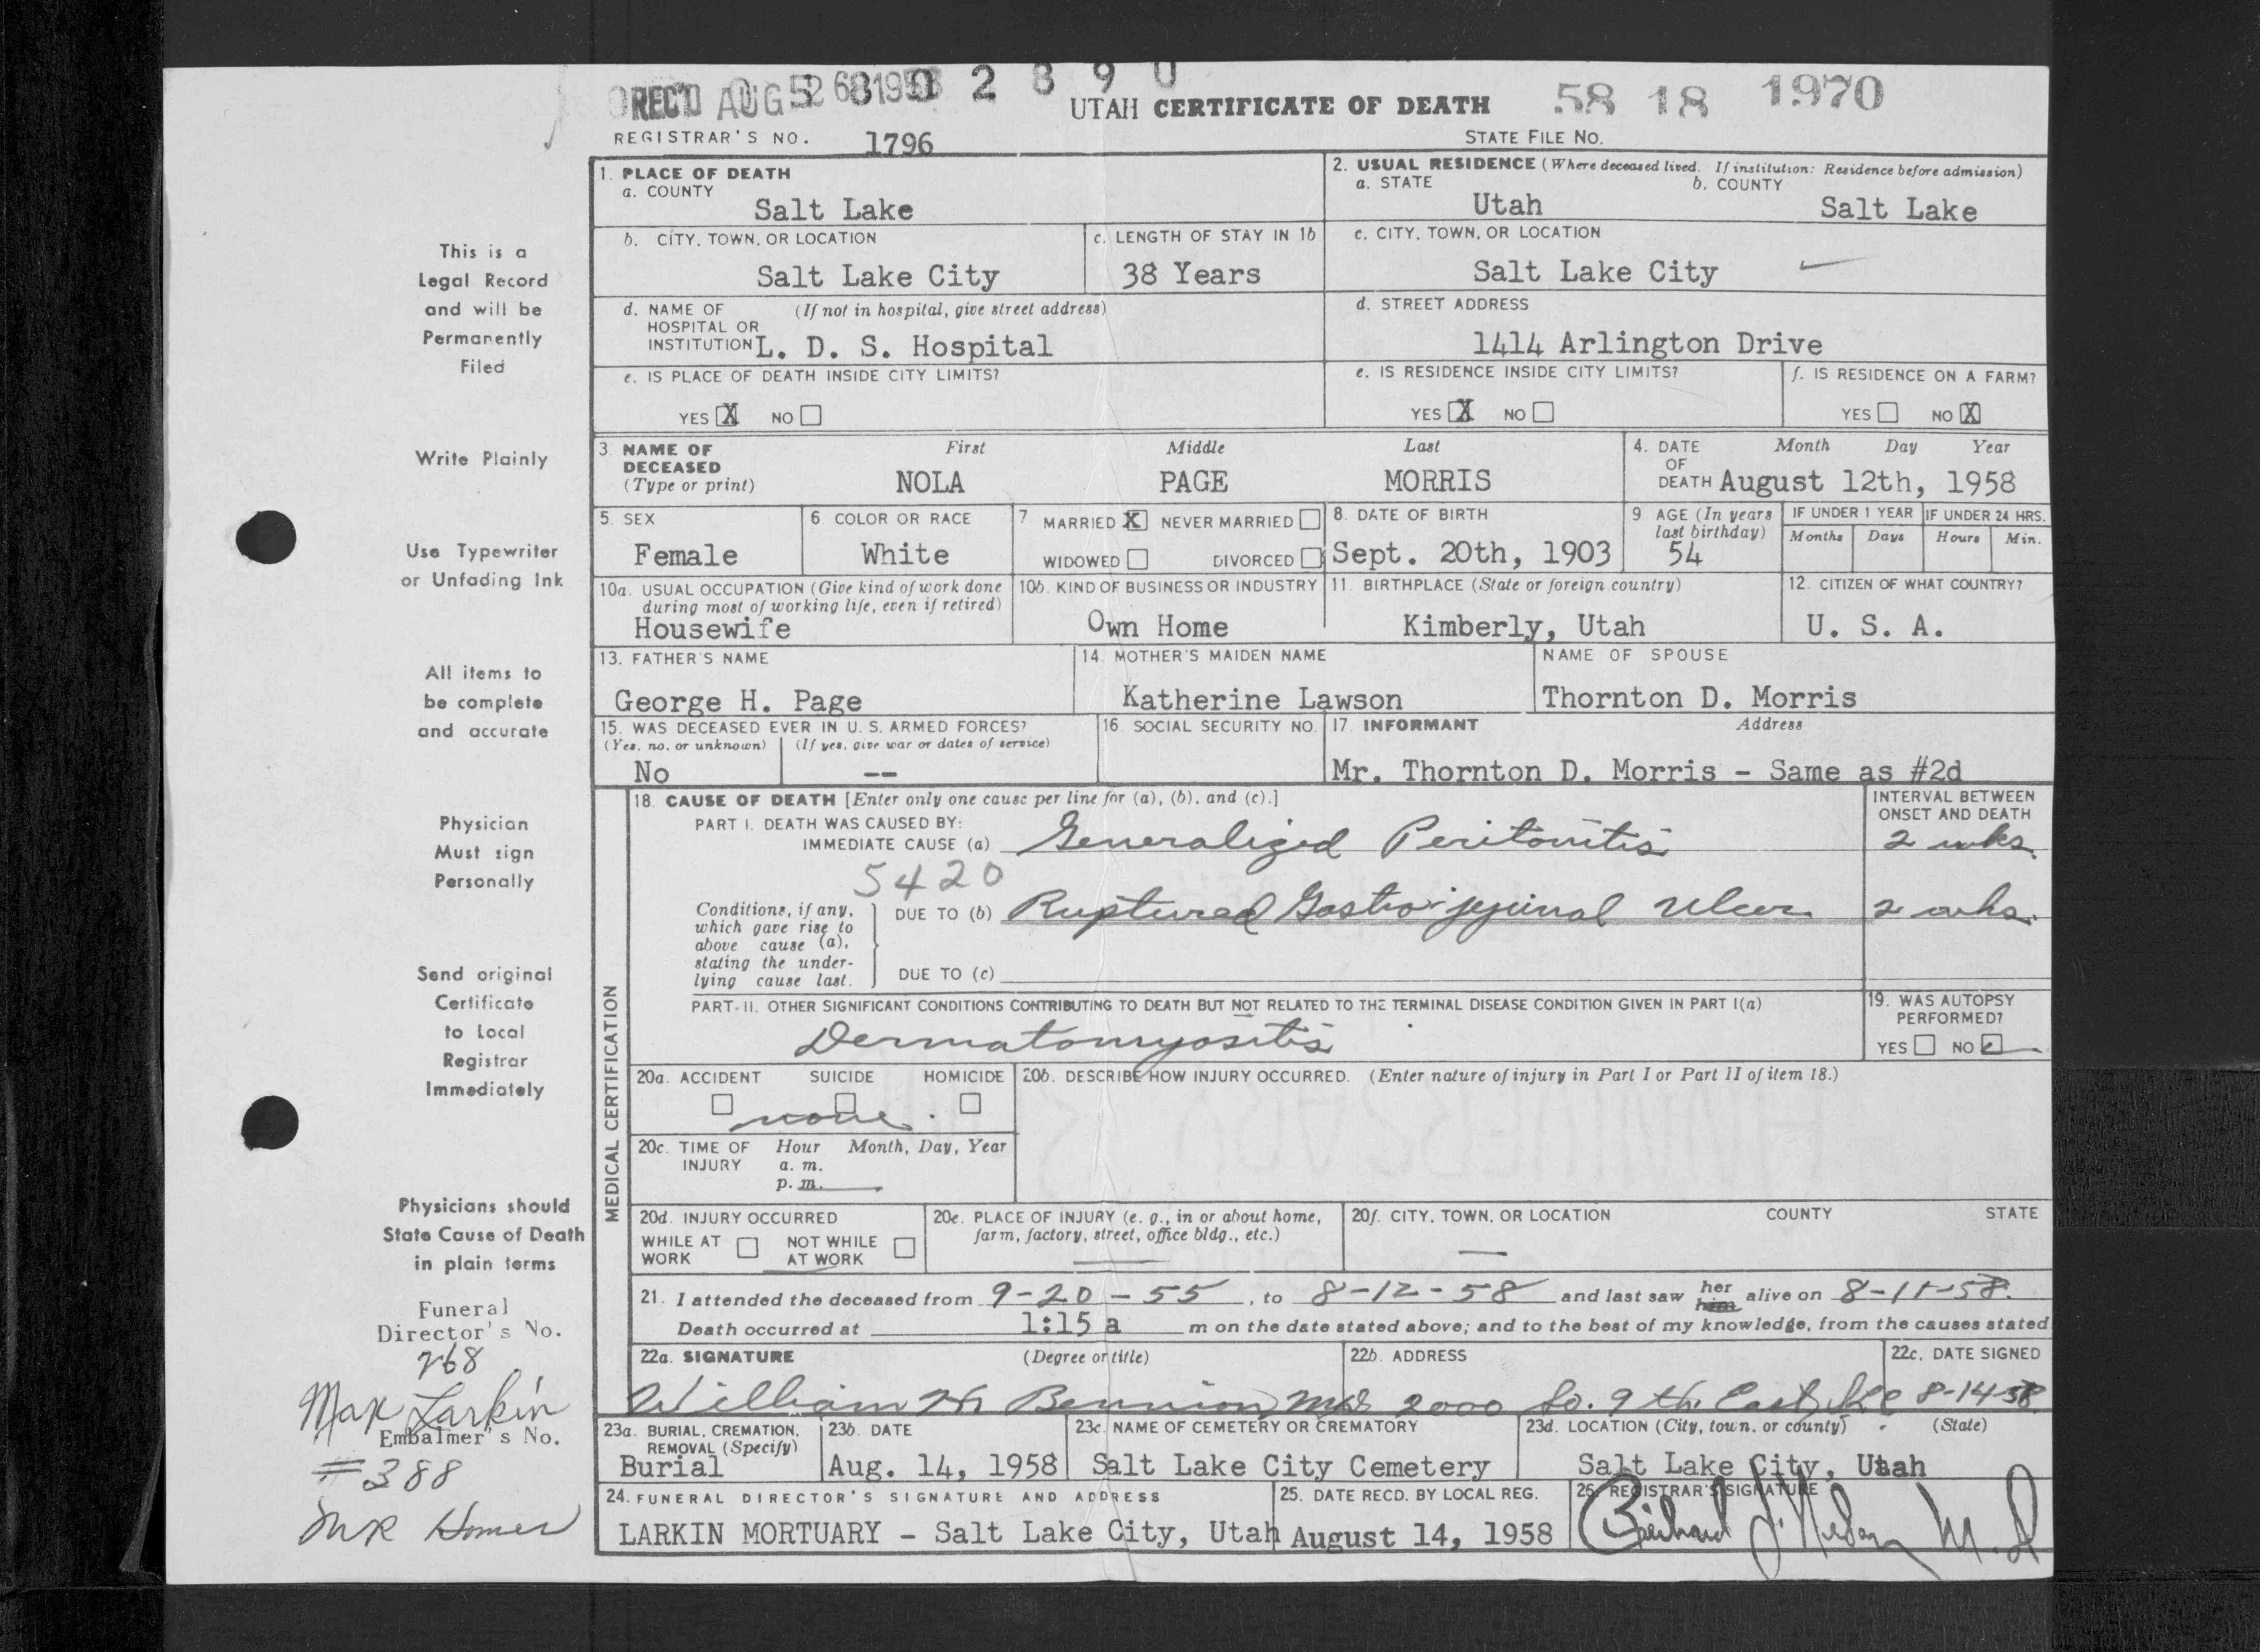 REC'D AUG 1958 0 2 8 9 0
UTAH CERTIFICATE OF DEATH 58 18 1970
REGISTRAR'S NO. 1796 STATE FILE NO.
This is a
Legal Record
and will be
Permanently
Filed
Write Plainly
Use Typewriter
or Unfading Ink
All items to
be complete
and accurate
Physician
Must sign
Personally
Send original
Certificate
to Local
Registrar
Immediately
Physicians should
State Cause of Death
in plain terms
Funeral
Director's No.
268
Max Larkin
Embalmer's No.
#388
Homer
1. PLACE OF DEATH
a. COUNTY
Salt Lake
2. USUAL RESIDENCE (Where deceased lived. If institution: Residence before admission)
a. STATE b. COUNTY
Utah Salt Lake
b. CITY, TOWN, OR LOCATION
Salt Lake City
c. LENGTH OF STAY IN 1b
38 Years
c. CITY, TOWN, OR LOCATION
Salt Lake City
d. NAME OF (If not in hospital, give street address)
HOSPITAL OR
INSTITUTION L. D. S. Hospital
d. STREET ADDRESS
1414 Arlington Drive
e. IS PLACE OF DEATH INSIDE CITY LIMITS?
YES X NO
e. IS RESIDENCE INSIDE CITY LIMITS?
YES X NO
f. IS RESIDENCE ON A FARM?
YES NO X
3 NAME OF First Middle Last
DECEASED
(Type or print) NOLA PAGE MORRIS
4. DATE Month Day Year
OF
DEATH August 12th, 1958
5. SEX
Female
6 COLOR OR RACE
White
7 MARRIED X NEVER MARRIED
WIDOWED DIVORCED
8. DATE OF BIRTH
Sept. 20th, 1903
9 AGE (In years
last birthday)
54
IF UNDER 1 YEAR IF UNDER 24 HRS.
Months Days Hours Min.
10a. USUAL OCCUPATION (Give kind of work done
during most of working life, even if retired)
Housewife
10b. KIND OF BUSINESS OR INDUSTRY
Own Home
11. BIRTHPLACE (State or foreign country)
Kimberly, Utah
12. CITIZEN OF WHAT COUNTRY?
U. S. A.
13. FATHER'S NAME
George H. Page
14. MOTHER'S MAIDEN NAME
Katherine Lawson
NAME OF SPOUSE
Thornton D. Morris
15. WAS DECEASED EVER IN U. S. ARMED FORCES?
(Yes, no, or unknown) (If yes, give war or dates of service)
No --
16. SOCIAL SECURITY NO.
17. INFORMANT Address
Mr. Thornton D. Morris - Same as #2d
MEDICAL CERTIFICATION
18. CAUSE OF DEATH [Enter only one cause per line for (a), (b), and (c).]
PART I. DEATH WAS CAUSED BY:
IMMEDIATE CAUSE (a) Generalized Peritonitis
5420
INTERVAL BETWEEN
ONSET AND DEATH
2 wks.
Conditions, if any,
which gave rise to
above cause (a),
stating the under-
lying cause last.
DUE TO (b) Ruptured Gastro-jejunal Ulcer 2 wks.
DUE TO (c)
PART II. OTHER SIGNIFICANT CONDITIONS CONTRIBUTING TO DEATH BUT NOT RELATED TO THE TERMINAL DISEASE CONDITION GIVEN IN PART I(a)
Dermatomyositis
19. WAS AUTOPSY
PERFORMED?
YES NO
20a. ACCIDENT SUICIDE HOMICIDE
none.
20b. DESCRIBE HOW INJURY OCCURRED. (Enter nature of injury in Part I or Part II of item 18.)
20c. TIME OF Hour Month, Day, Year
INJURY a. m.
p. m.
20d. INJURY OCCURRED
WHILE AT NOT WHILE
WORK AT WORK
20e. PLACE OF INJURY (e. g., in or about home,
farm, factory, street, office bldg., etc.)
20f. CITY, TOWN, OR LOCATION COUNTY STATE
21. I attended the deceased from 9-20-55, to 8-12-58 and last saw her him alive on 8-11-58.
Death occurred at 1:15 a m on the date stated above; and to the best of my knowledge, from the causes stated
22a. SIGNATURE (Degree or title)
William H Bennion MD
22b. ADDRESS
2000 So. 9th East SLC
22c. DATE SIGNED
8-14-58
23a. BURIAL, CREMATION,
REMOVAL (Specify)
Burial
23b. DATE
Aug. 14, 1958
23c. NAME OF CEMETERY OR CREMATORY
Salt Lake City Cemetery
23d. LOCATION (City, town, or county) (State)
Salt Lake City, Utah
24. FUNERAL DIRECTOR'S SIGNATURE AND ADDRESS
LARKIN MORTUARY - Salt Lake City, Utah
25. DATE RECD. BY LOCAL REG.
August 14, 1958
26. REGISTRAR'S SIGNATURE
M.D